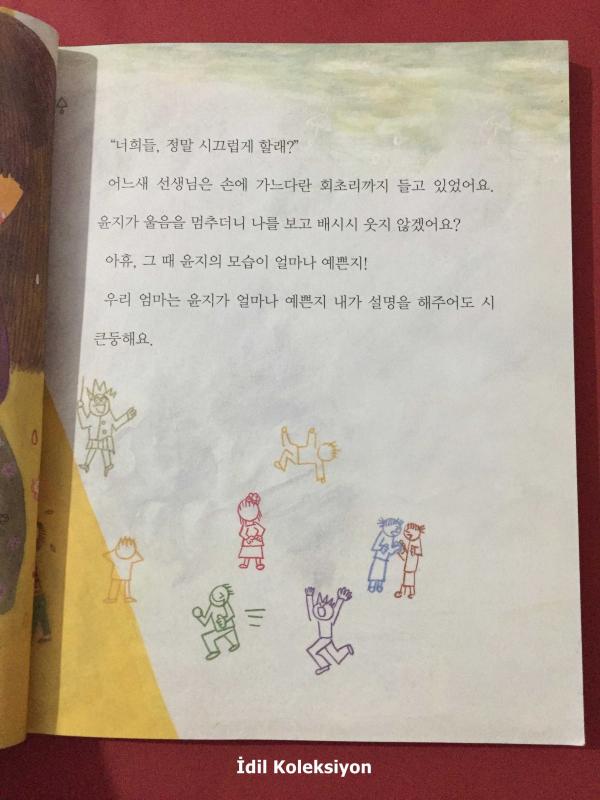 “너희들, 정말 시끄럽게 할래?”
어느새 선생님은 손에 가느다란 회초리까지 들고 있었어요.
윤지가 울음을 멈추더니 나를 보고 배시시 웃지 않겠어요?
아휴, 그 때 윤지의 모습이 얼마나 예쁜지!
우리 엄마는 윤지가 얼마나 예쁜지 내가 설명을 해주어도 시
큰둥해요.
İdil Koleksiyon